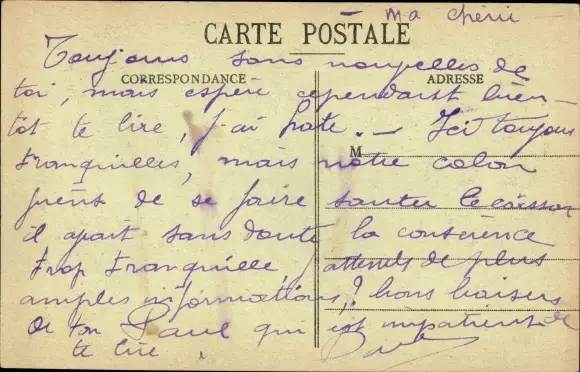 Ma chérie
CARTE POSTALE
Toujours sans nouvelles de
CORRESPONDANCE ADRESSE
toi, mais espère cependant bien-
tôt te lire, j'ai hâte. — Ici toujours
M
tranquilles, mais notre colon
vient de se faire sauter le caisson
il avait sans doute la conscience
trop tranquille, attends de plus
amples informations, ? bons baisers
de ton Paul qui est impatient de
te lire. Paul